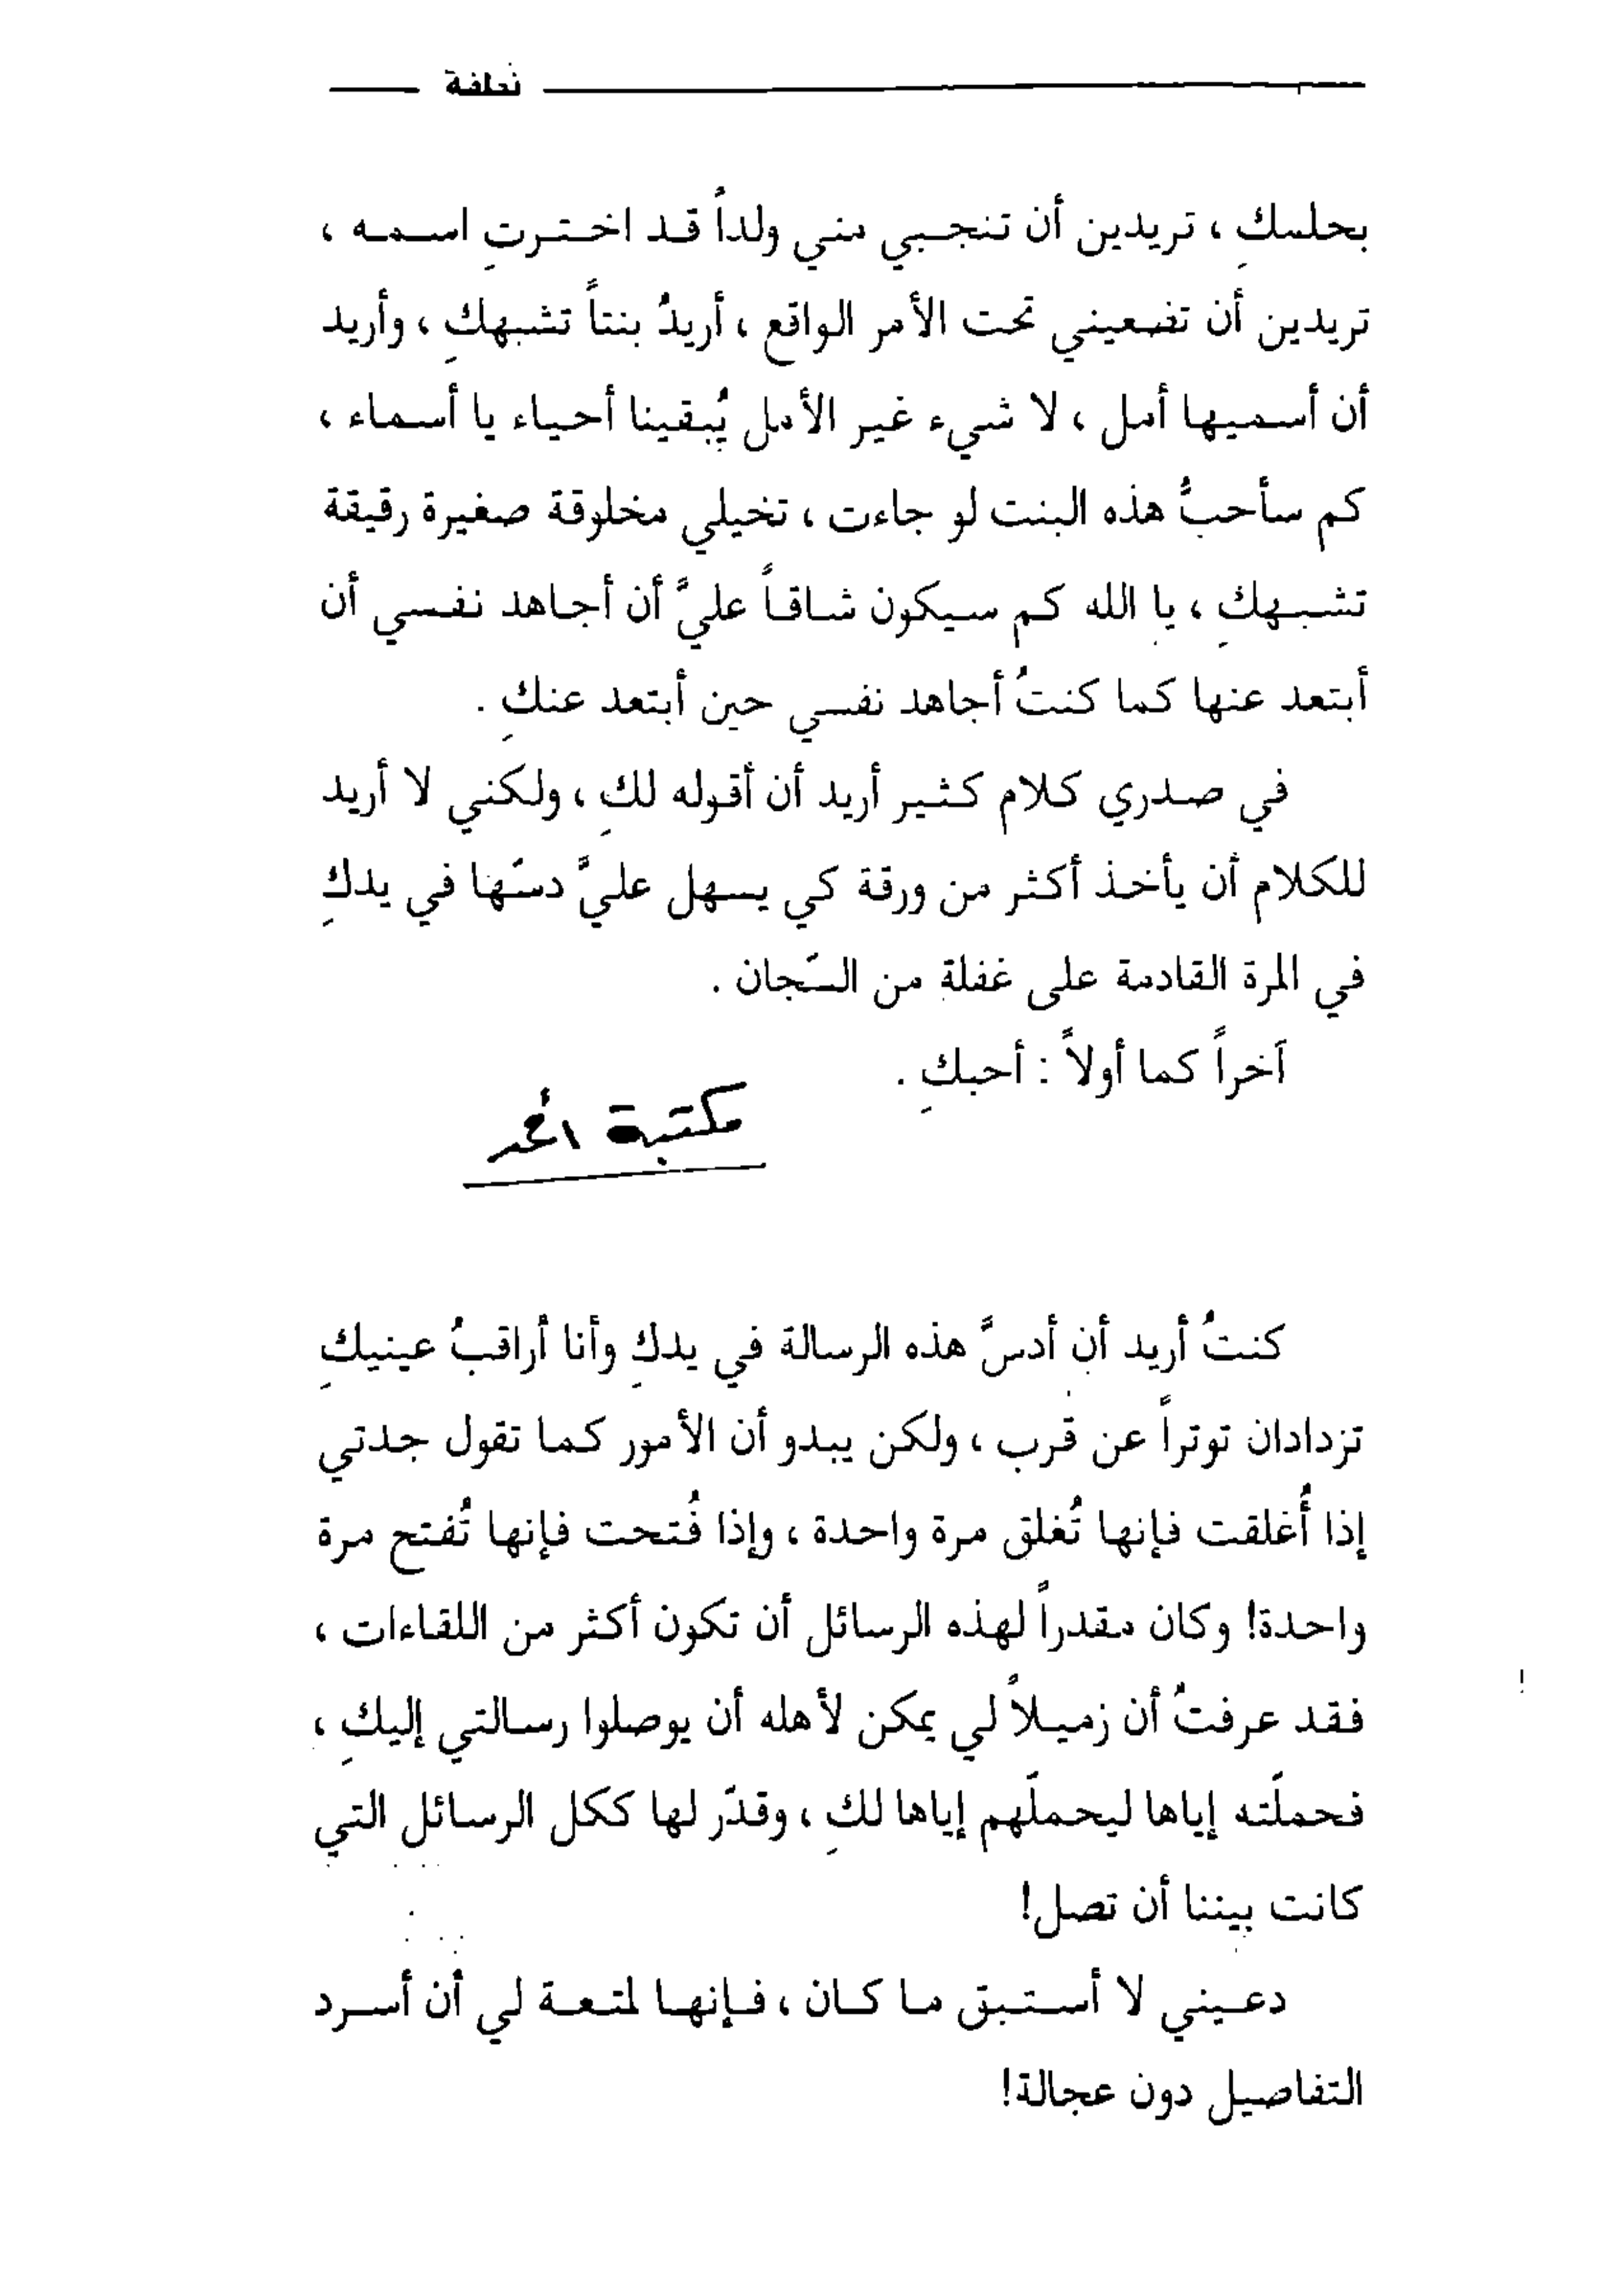 نطفة
بحلمكِ ، تريدين أن تنجبي مني ولداً قد اخترتِ اسمه ،
تريدين أن تضعيني تحت الأمر الواقع ، أريدُ بنتاً تشبهكِ ، وأريد
أن أسميها أمل ، لا شيء غير الأمل يُبقينا أحياء يا أسماء ،
كم سأحبُّ هذه البنت لو جاءت ، تخيلي مخلوقة صغيرة رقيقة
تشبهكِ ، يا الله كم سيكون شاقاً عليَّ أن أجاهد نفسي أن
أبتعد عنها كما كنتُ أجاهد نفسي حين أبتعد عنكِ .
في صدري كلام كثير أريد أن أقوله لكِ ، ولكني لا أريد
للكلام أن يأخذ أكثر من ورقة كي يسهل عليَّ دسّها في يدكِ
في المرة القادمة على غفلة من السّجان .
آخراً كما أولاً : أحبكِ .
مكتبة أحمد
كنتُ أريد أن أدسَّ هذه الرسالة في يدكِ وأنا أراقبُ عينيكِ
تزدادان توتراً عن قرب ، ولكن يبدو أن الأمور كما تقول جدتي
إذا أُغلقت فإنها تُغلق مرة واحدة ، وإذا فُتحت فإنها تُفتح مرة
واحدة! وكان مقدراً لهذه الرسائل أن تكون أكثر من اللقاءات ،
فقد عرفتُ أن زميلاً لي يمكن لأهله أن يوصلوا رسالتي إليكِ ،
فحملّته إياها ليحملّهم إياها لكِ ، وقدّر لها ككل الرسائل التي
كانت بيننا أن تصل!
دعيني لا أستبق ما كان ، فإنها لمتعة لي أن أسرد
التفاصيل دون عجالة!